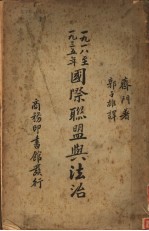 齊門著
郭子雄譯
一九一八至
一九三五年
國際聯盟與法治
商務印書館發行